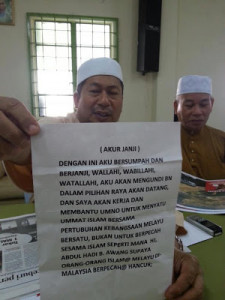 ( AKUR JANJI )
DENGAN INI AKU BERSUMPAH DAN
BERJANJI, WALLAHI, WABILLAHI,
WATALLAHI, AKU AKAN MENGUNDI BN
DALAM PILIHAN RAYA AKAN DATANG,
DAN SAYA AKAN KERJA DAN
MEMBANTU UMNO UNTUK MENYATU
UMMAT ISLAM BERSAMA
PERTUBUHAN KEBANGSAAN MELAYU
BERSATU, BUKAN UNTUK BERPECAH
SESAMA ISLAM SEPERTI MANA HJ.
ABDUL HADI B. AWANG SUPAYA
ORANG-ORANG ISLAM
MALAYSIA BERPECAH HANCUR.